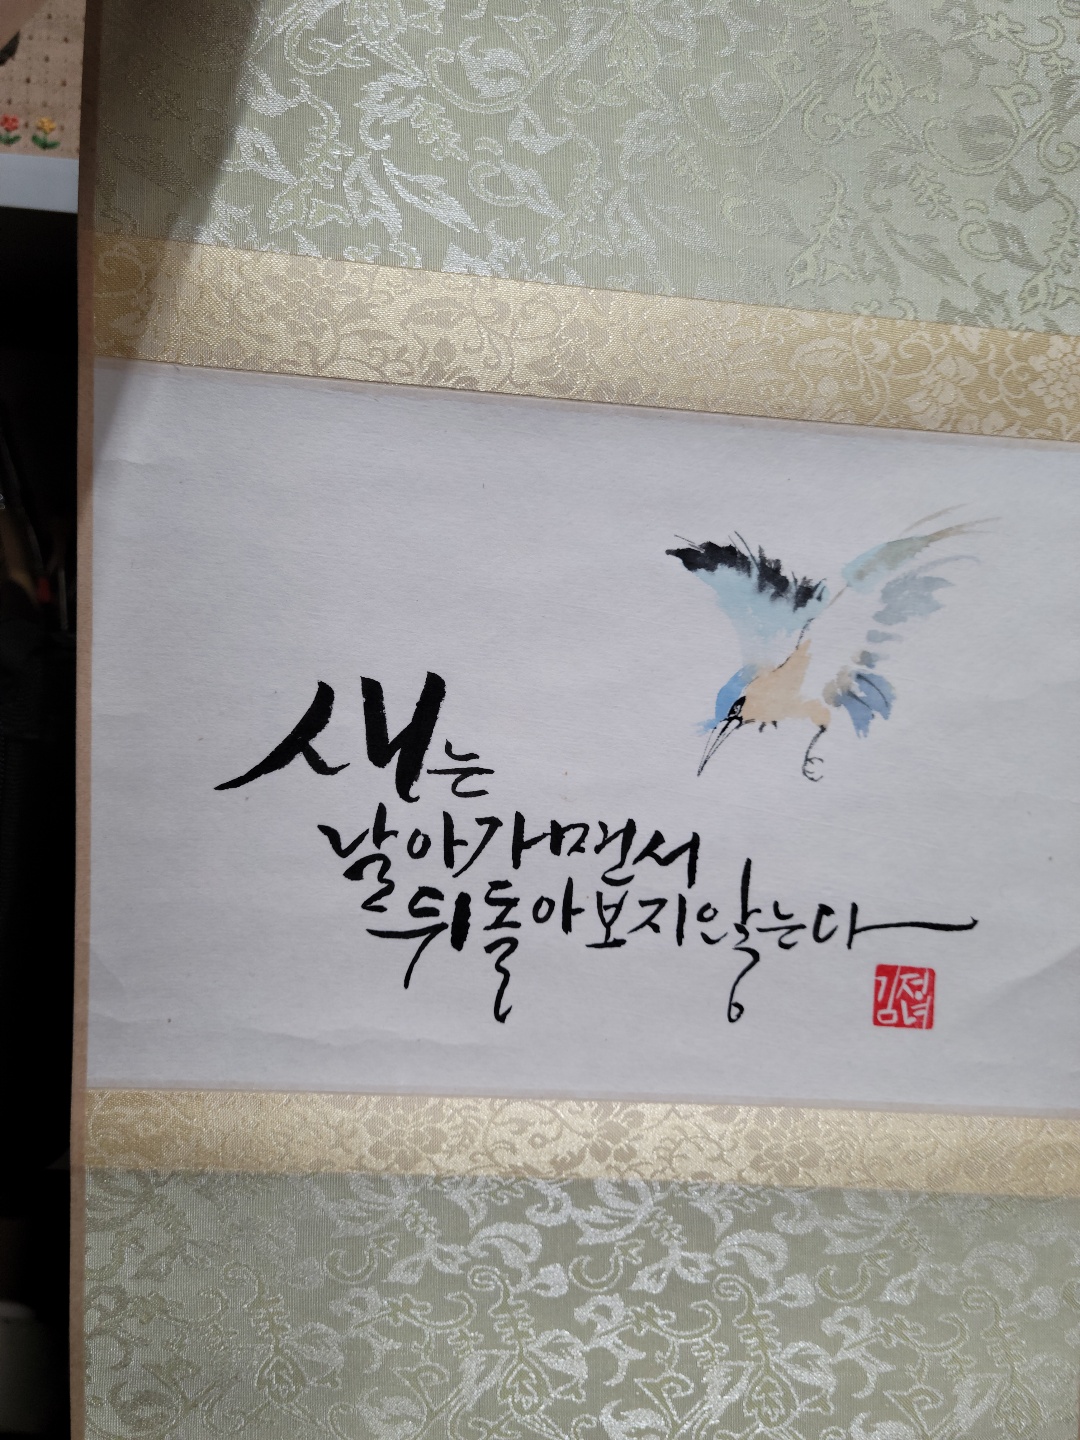 새는
날아가면서
뒤돌아보지않는다
김정녀